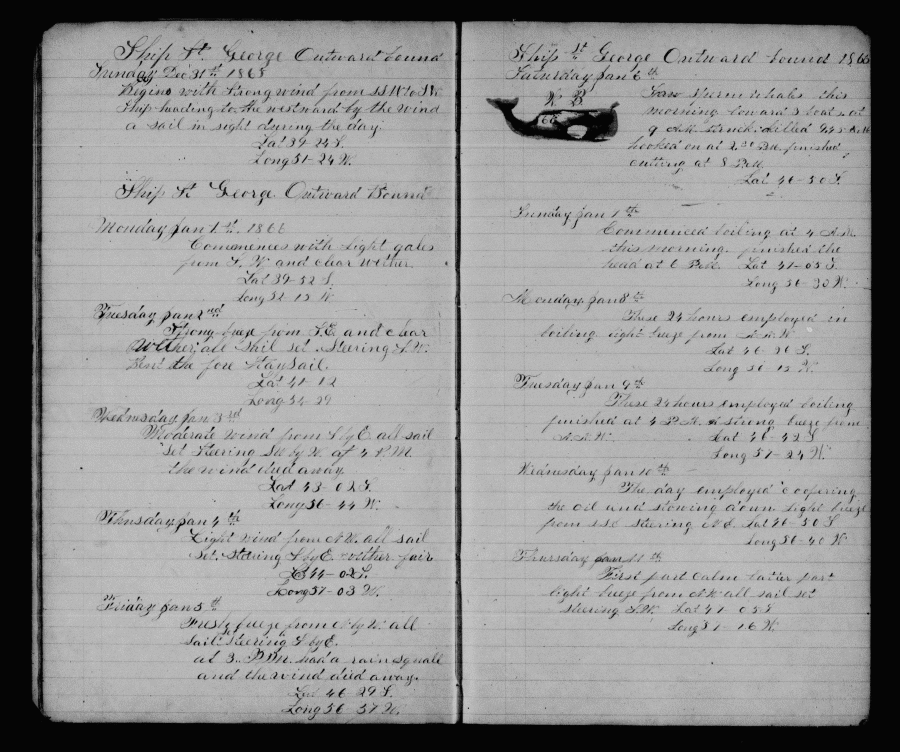 Ship St. George Outward bound
Sunday Dec 31st 1865
Begins with strong wind from SSW to SW
Ship heading to the westward by the wind
a sail in sight during the day.
Lat 39-24 S.
Long 51-24 W.
Ship St George Outward Bound
Monday Jan 1st. 1866
Commences with light gales
from S. W and clear wether.
Lat 39-52 S.
Long 52-15 W.
Tuesday Jan 2nd
Strong breeze from S.E. and clear
wether, all sail set steering S.W.
Bent the fore staysail.
Lat 41-12
Long 54-29
Wednesday Jan 3rd
Moderate wind from S by E all sail
set steering SW by W at 4 P.M
the wind died away
Lat 43-02 S.
Long 56-44 W.
Thursday Jan 4th
Light wind from N.W. all sail
set. Steering S by E. wether fair
Lat 44-02 S.
Long 57-03 W.
Friday Jan 5th
Fresh breeze from N by W. all
sail. steering S by E.
at 3. P.M. had a rain squall
and the wind died away.
Lat 46-29 S.
Long 56-57 W.
Ship St George Outward bound 1866
Saturday Jan 6th
Saw sperm whales this
W B
morning lowered 3 boats at
68
9 A.M. struck killed
hooked on at 2 P.M. finished
cutting at 8 P.M.
Lat 46-50 S.
Sunday Jan 7th
Commenced boiling at 4 A.M.
this morning. finished the
head at 6 P.M. Lat 47-05 S
Long 56-30 W.
Monday Jan 8th
These 24 hours employed in
boiling light breeze from N.N.W
Lat 46-36 S.
Long 56-12 W.
Tuesday Jan 9th
These 24 hours employed boiling
finished at 4 P.M. A strong breeze from
N.N.W. Lat 46-42 S
Long 57-24 W.
Wednesday Jan 10th
The day employed coopering
the oil and stowing down light breeze
from SSE steering N.E. Lat 46-50 S
Long 56-40 W.
Thursday Jan 11th
First part calm latter part
light breeze from N.W. all sail set
steering S.W. Lat 47-05 S
Long 57-16 W.